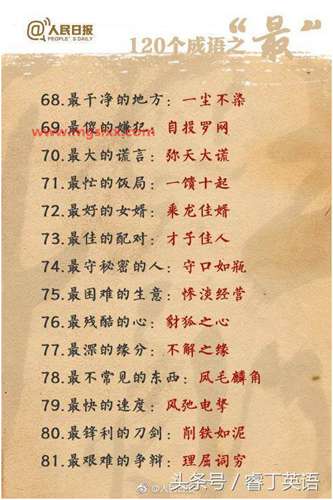 @人民日报
PEOPLE'S DAILY
120个成语之“最”
68.最干净的地方：一尘不染
69.最傻的嫌犯：自投罗网
www.mgsixx.com
70.最大的谎言：弥天大谎
71.最忙的饭局：一馈十起
72.最好的女婿：乘龙佳婿
73.最佳的配对：才子佳人
74.最守秘密的人：守口如瓶
75.最困难的生意：惨淡经营
76.最残酷的心：豺狐之心
77.最深的缘分：不解之缘
78.最不常见的东西：凤毛麟角
79.最快的速度：风驰电掣
80.最锋利的刀剑：削铁如泥
81.最艰难的争辩：理屈词穷
@人民日报
头条号/睿丁英语